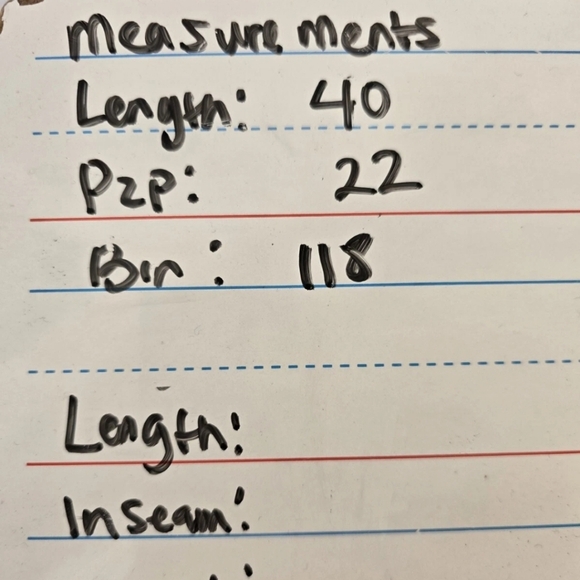 Measurements
Length: 40
P2P: 22
Bin: 118
Length:
Inseam: